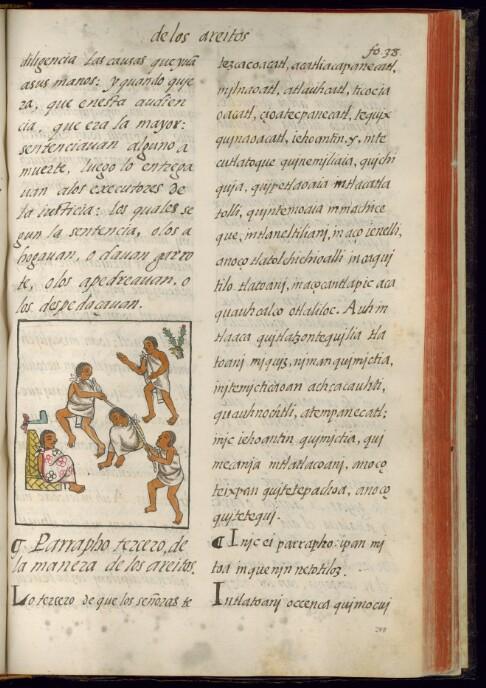 de los areitos
fo. 38.
diligencia las causas que yuā
a sus manos: y quando quje
ra, que enesta audien
cia, que era la mayor:
sentenciauan alguno a
muerte, luego lo entrega
uan alos executores de
la iusticia: los quales se
gun la sentencia, o los a
hogauan, o dauan garro
te, o los apedreauan, o
los despedaçauan.
¶ Parrapho tercero, de
la manera de los areitos.
Lo tercero de que los señores te
tezcacoacatl, acatliacapanecatl,
mjlnaoatl, atlauhcatl, ticocia
oacatl, cioatecpanecatl, tequix
qujnaoacatl, iehoantin. y, inte
cutlatoque qujnemiliaia, qujchi
quja, qujpetlaoaia intlacatla
tolli, qujntemoaia inmachice
que, intlaneltiliani, in aço ienelli,
anoço tlatolchichioalli in oqui
tilo tlatoani, inaço çantlapic aca
quauhcalco otlaliloc. Auh in
tlaaca qujtlatzontequilia tla
toani miqujz, njman qujmjctia,
injtemjcticaoan achcacauhti,
quauhnochtli, atempanecatl:
injc iehoantin qujmjctia, quj
mecanja intlatlacoani, anoço
teixpan qujtetepachoa, anoço
qujtetequj.
¶ Injc ei parrapho: ipan mj
toa inquenjn netotiloz.
Intlatoanj occenca qujmocuj